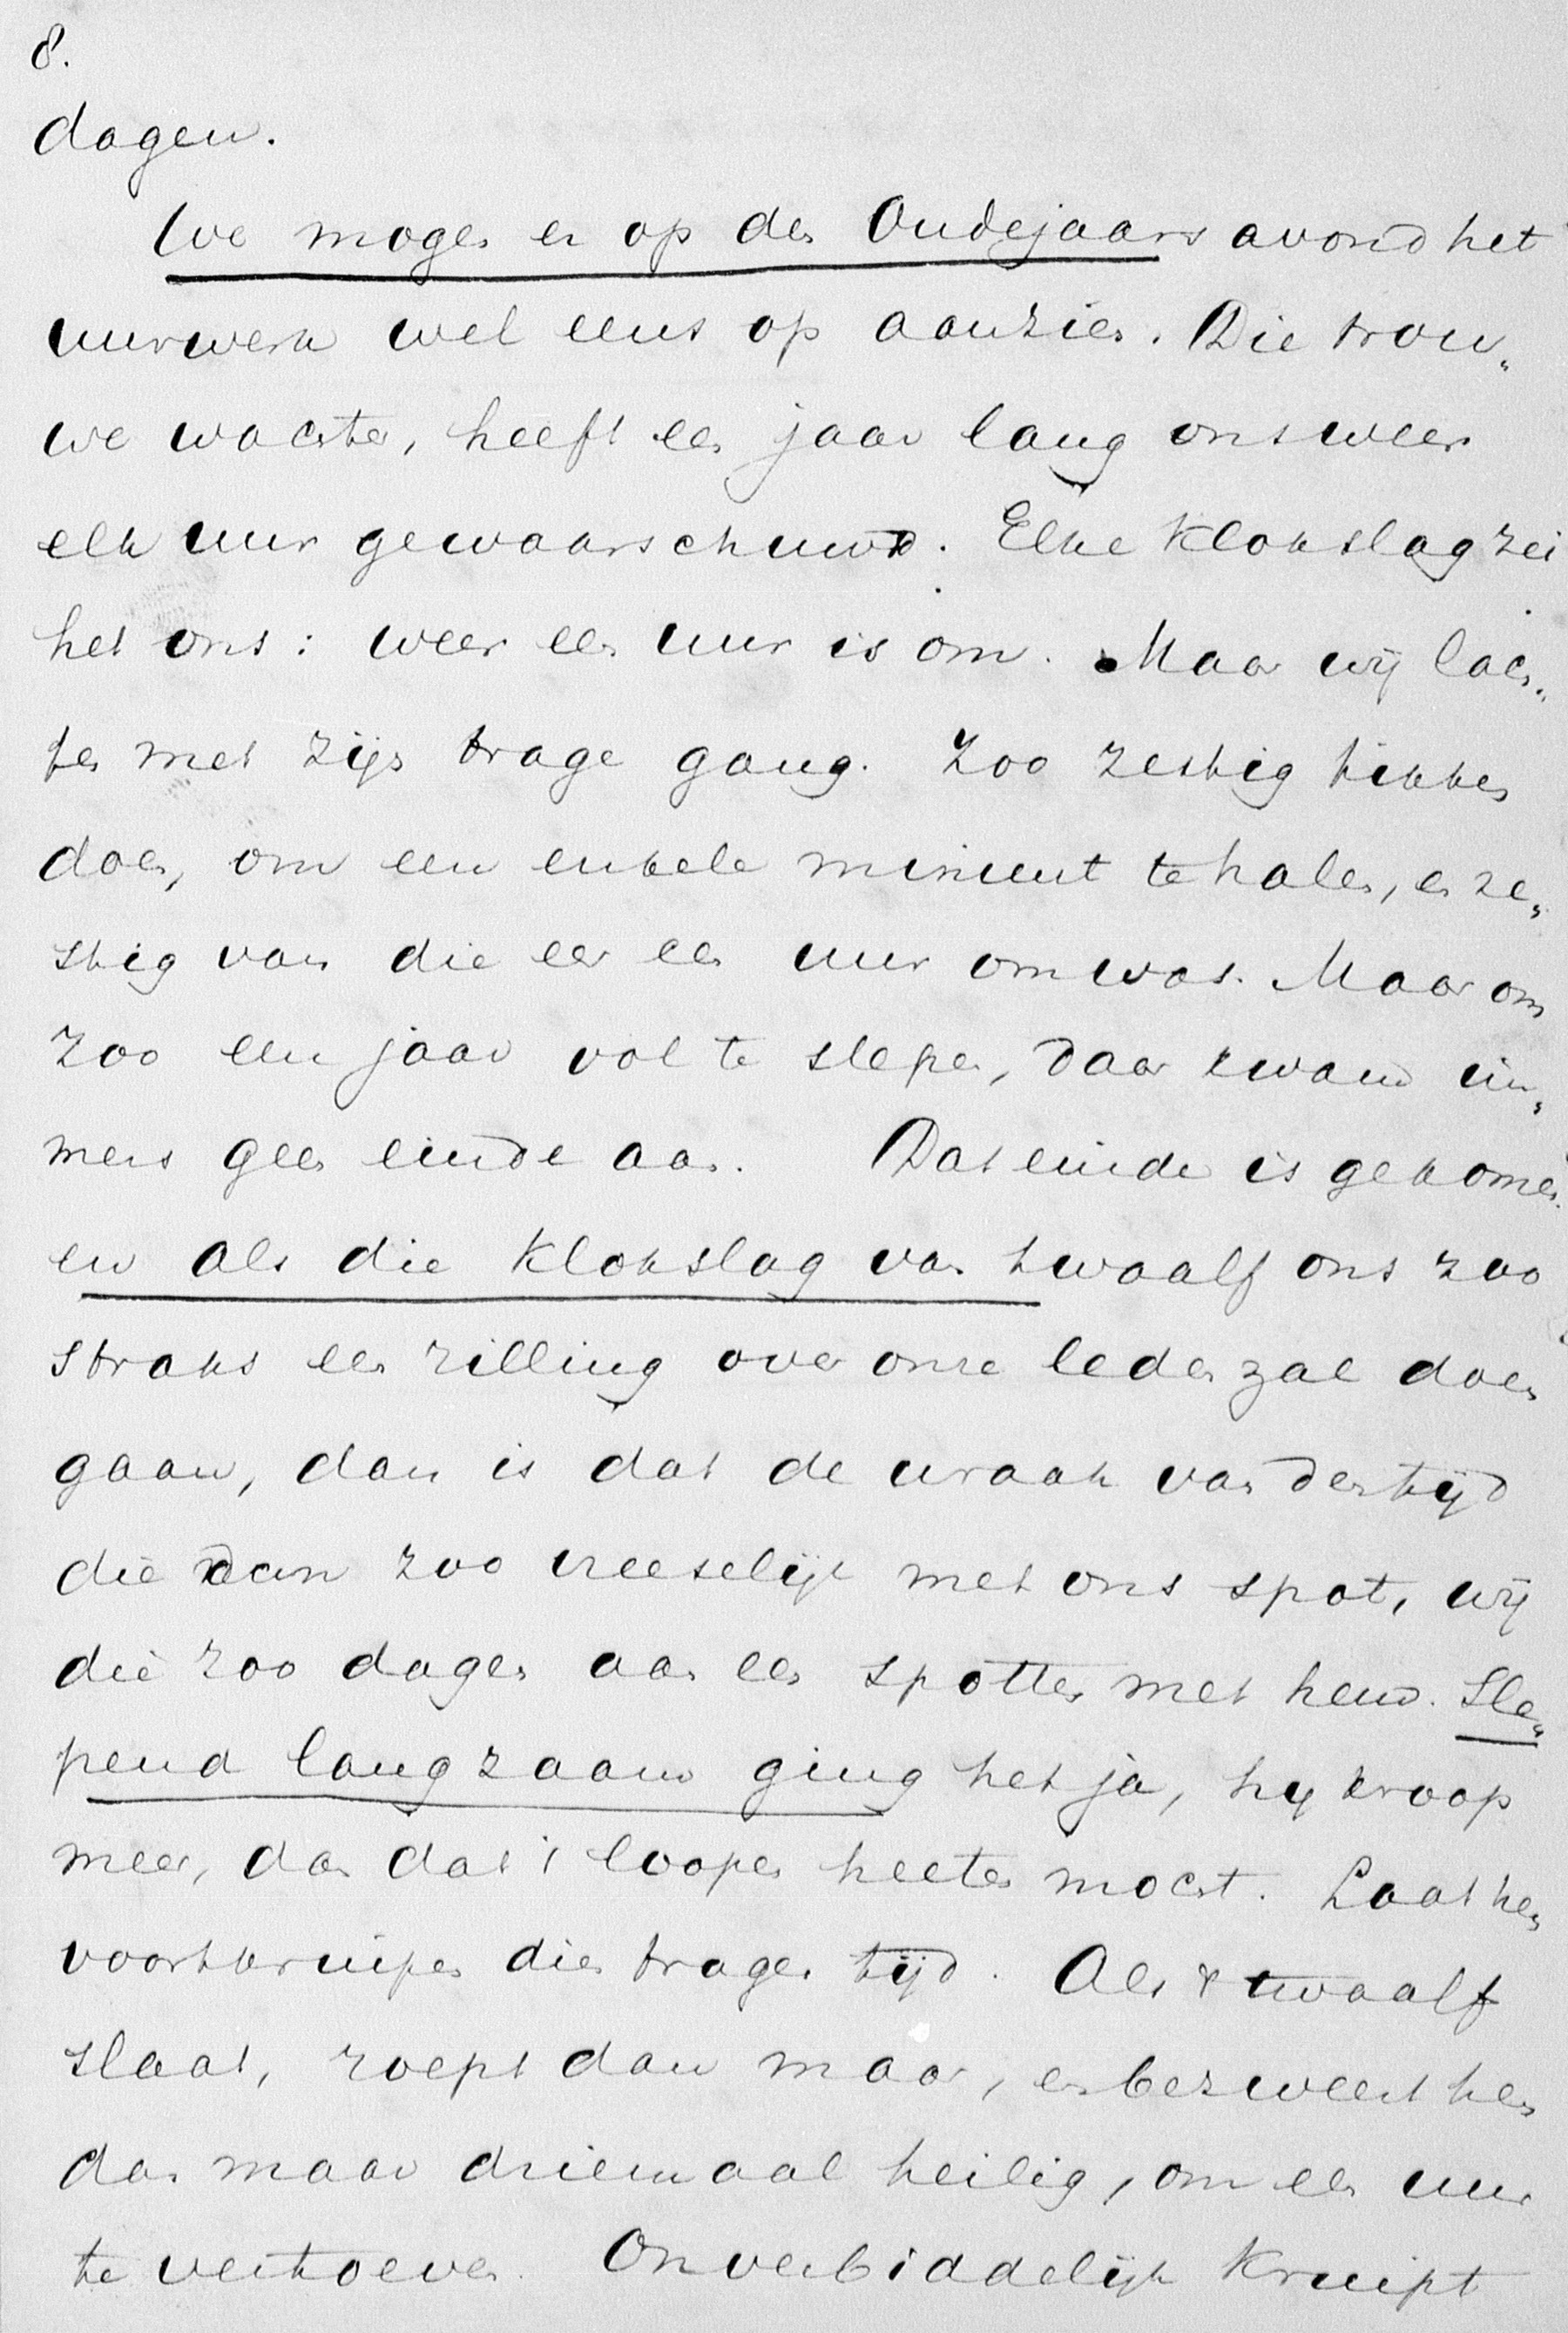 8.
dagen.
We mogen er op den Oudejaars avond het
uurwerk wel eens op aanzien. Die trou„
we wachter, heeft een jaar lang ons weer
elk uur gewaarschuwd. Elke klokslag zei
het ons: weer een uur is om. Maar wij lach„
ten met zijn trage gang. Zoo zestig tikken
doen, om een enkele minuut te halen, en ze„
stig van die eer een uur om was. Maar om
zoo een jaar vol te slepen, daar kwam im„
mers geen einde aan. Dat einde is gekomen.
en als die klokslag van twaalf ons zoo
straks een rilling over onze leden zal doen
gaan, dan is dat de wraak van den tijd
die dan zoo vreeselijk met ons spot, wij
die zoo dagen aan een spotten met hem. Sle„
pend langzaam ging het ja, hij kroop
meer, dan dat 't loopen heeten mocht. Laat hen
voortkruipen dien tragen tijd. Als 't twaalf
slaat, roept dan maar, en bezweert hen
dan maar driemaal heilig, om een uur
te vertoeven. Onverbiddelijk kruipt